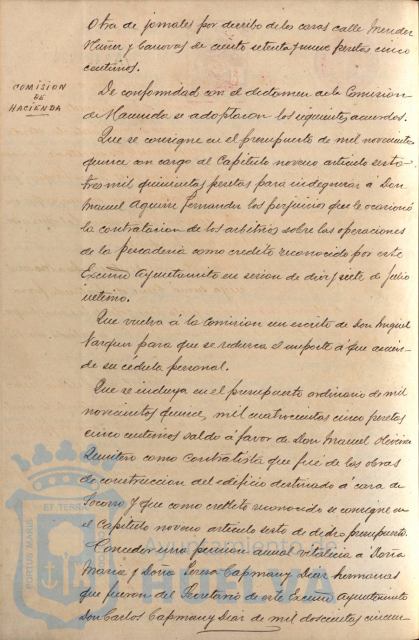 Otra de jornales por derribo de las casas calle Mendez
Nuñez y Canovas de ciento setenta y nueve pesetas cinco
centimos.
COMISION
DE
HACIENDA
De conformidad con el dictamen de la Comision
de Hacienda se adoptaron los siguientes acuerdos.
Que se consigne en el presupuesto de mil novecientos
quince con cargo al Capitulo noveno articulo sexto
tres mil quinientas pesetas para indegnizar á Don
Manuel Aguirre Fernandez los perjuicios que le ocasionó
la contratacion de los arbitrios sobre las operaciones
de la pescadería como credito reconocido por este
Excmo Ayuntamiento en sesion de diez y siete de Julio
ultimo.
Que vuelva á la Comision un escrito de Don Miguel
para que se reduzca el importe á que
de su cédula personal.
Que se incluya en el presupuesto ordinario de mil
novecientos quince, mil cuatrocientas cinco pesetas
cinco centimos saldo á favor de Don Manuel
Quintero como contratista que fué de las obras
de construccion del edificio destinado á casa de
Socorro y que como credito reconocido se consigne en
el Capitulo noveno articulo sexto de dicho presupuesto.
Conceder una pension anual vitalicia á Doña
Maria y Doña Teresa Capmany Diaz hermanas
que fueron del Secretario de este Excmo Ayuntamiento
Don Carlos Capmany Diaz de mil doscientas cincuen
PORTUS MARIS
ET TERRAE
Ayuntamiento de